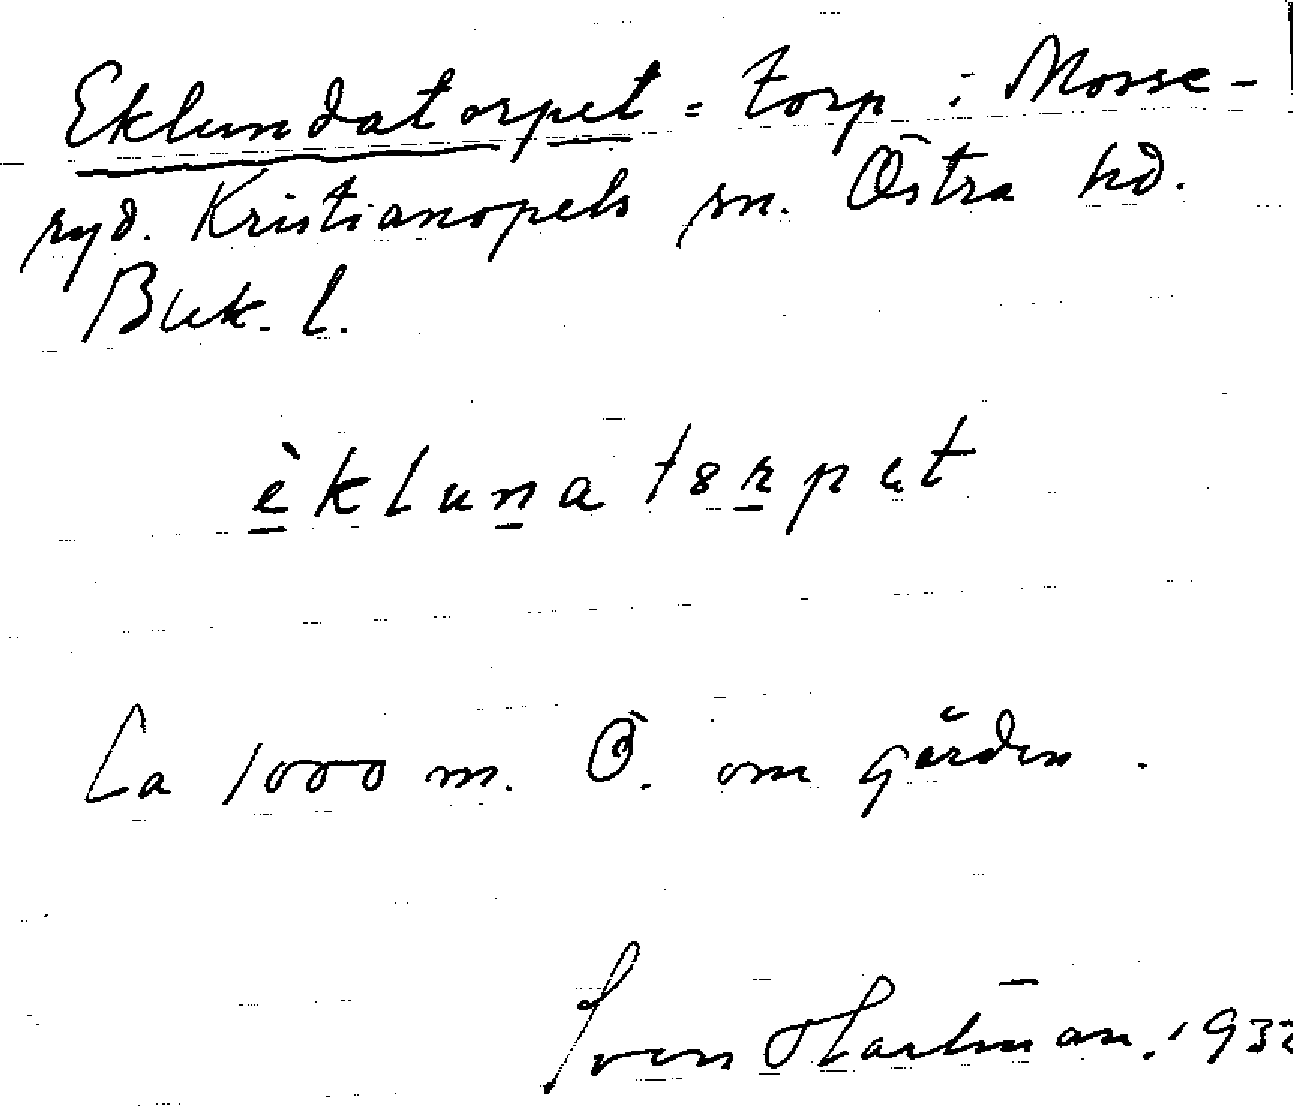 Eklundatorpet = torp i Mosse-
ryd. Kristianopels sn. Östra hd.
Blek. l.
èkluna tɜrpet
Ca 1000 m. Ö. om gården.
Sven Hartman. 1932